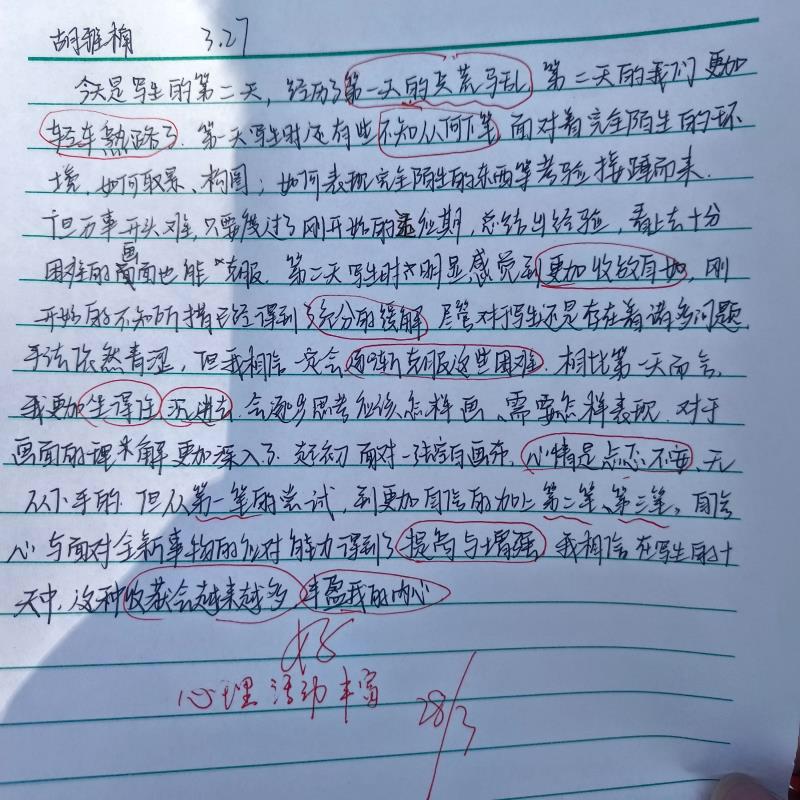 胡雅楠 3.27
今天是写生的第二天，经历了第一天的兵荒马乱 第二天的我们更加
轻车熟路了. 第一天写生时还有些不知从何下笔 面对着完全陌生的环
境，如何取景、构图；如何表现完全陌生的东西等考验接踵而来.
但万事开头难，只要度过了刚开始的适应期，总结出经验，看上去十分
困难的画面也能克服. 第二天写生时才明显感觉到更加收放自如，刚
开始的不知所措已经得到了充分的缓解 尽管对于写生还是存在着诸多问题
手法依然青涩，但我相信一定会逐渐克服这些困难. 相比第一天而言，
我更加坐得住 沉进去. 会逐步思考应该怎样画、需要怎样表现. 对于
画面的理解更加深入了. 起初面对一张空白画布，心情是忐忑不安、无
从下手的. 但从第一笔的尝试，到更加自信的加上第二笔、第三笔，自信
心与面对全新事物的应对能力得到了提高与增强. 我相信在写生的十
天中，这种收获会越来越多，丰盈我的内心
好
心理活动丰富
28/3